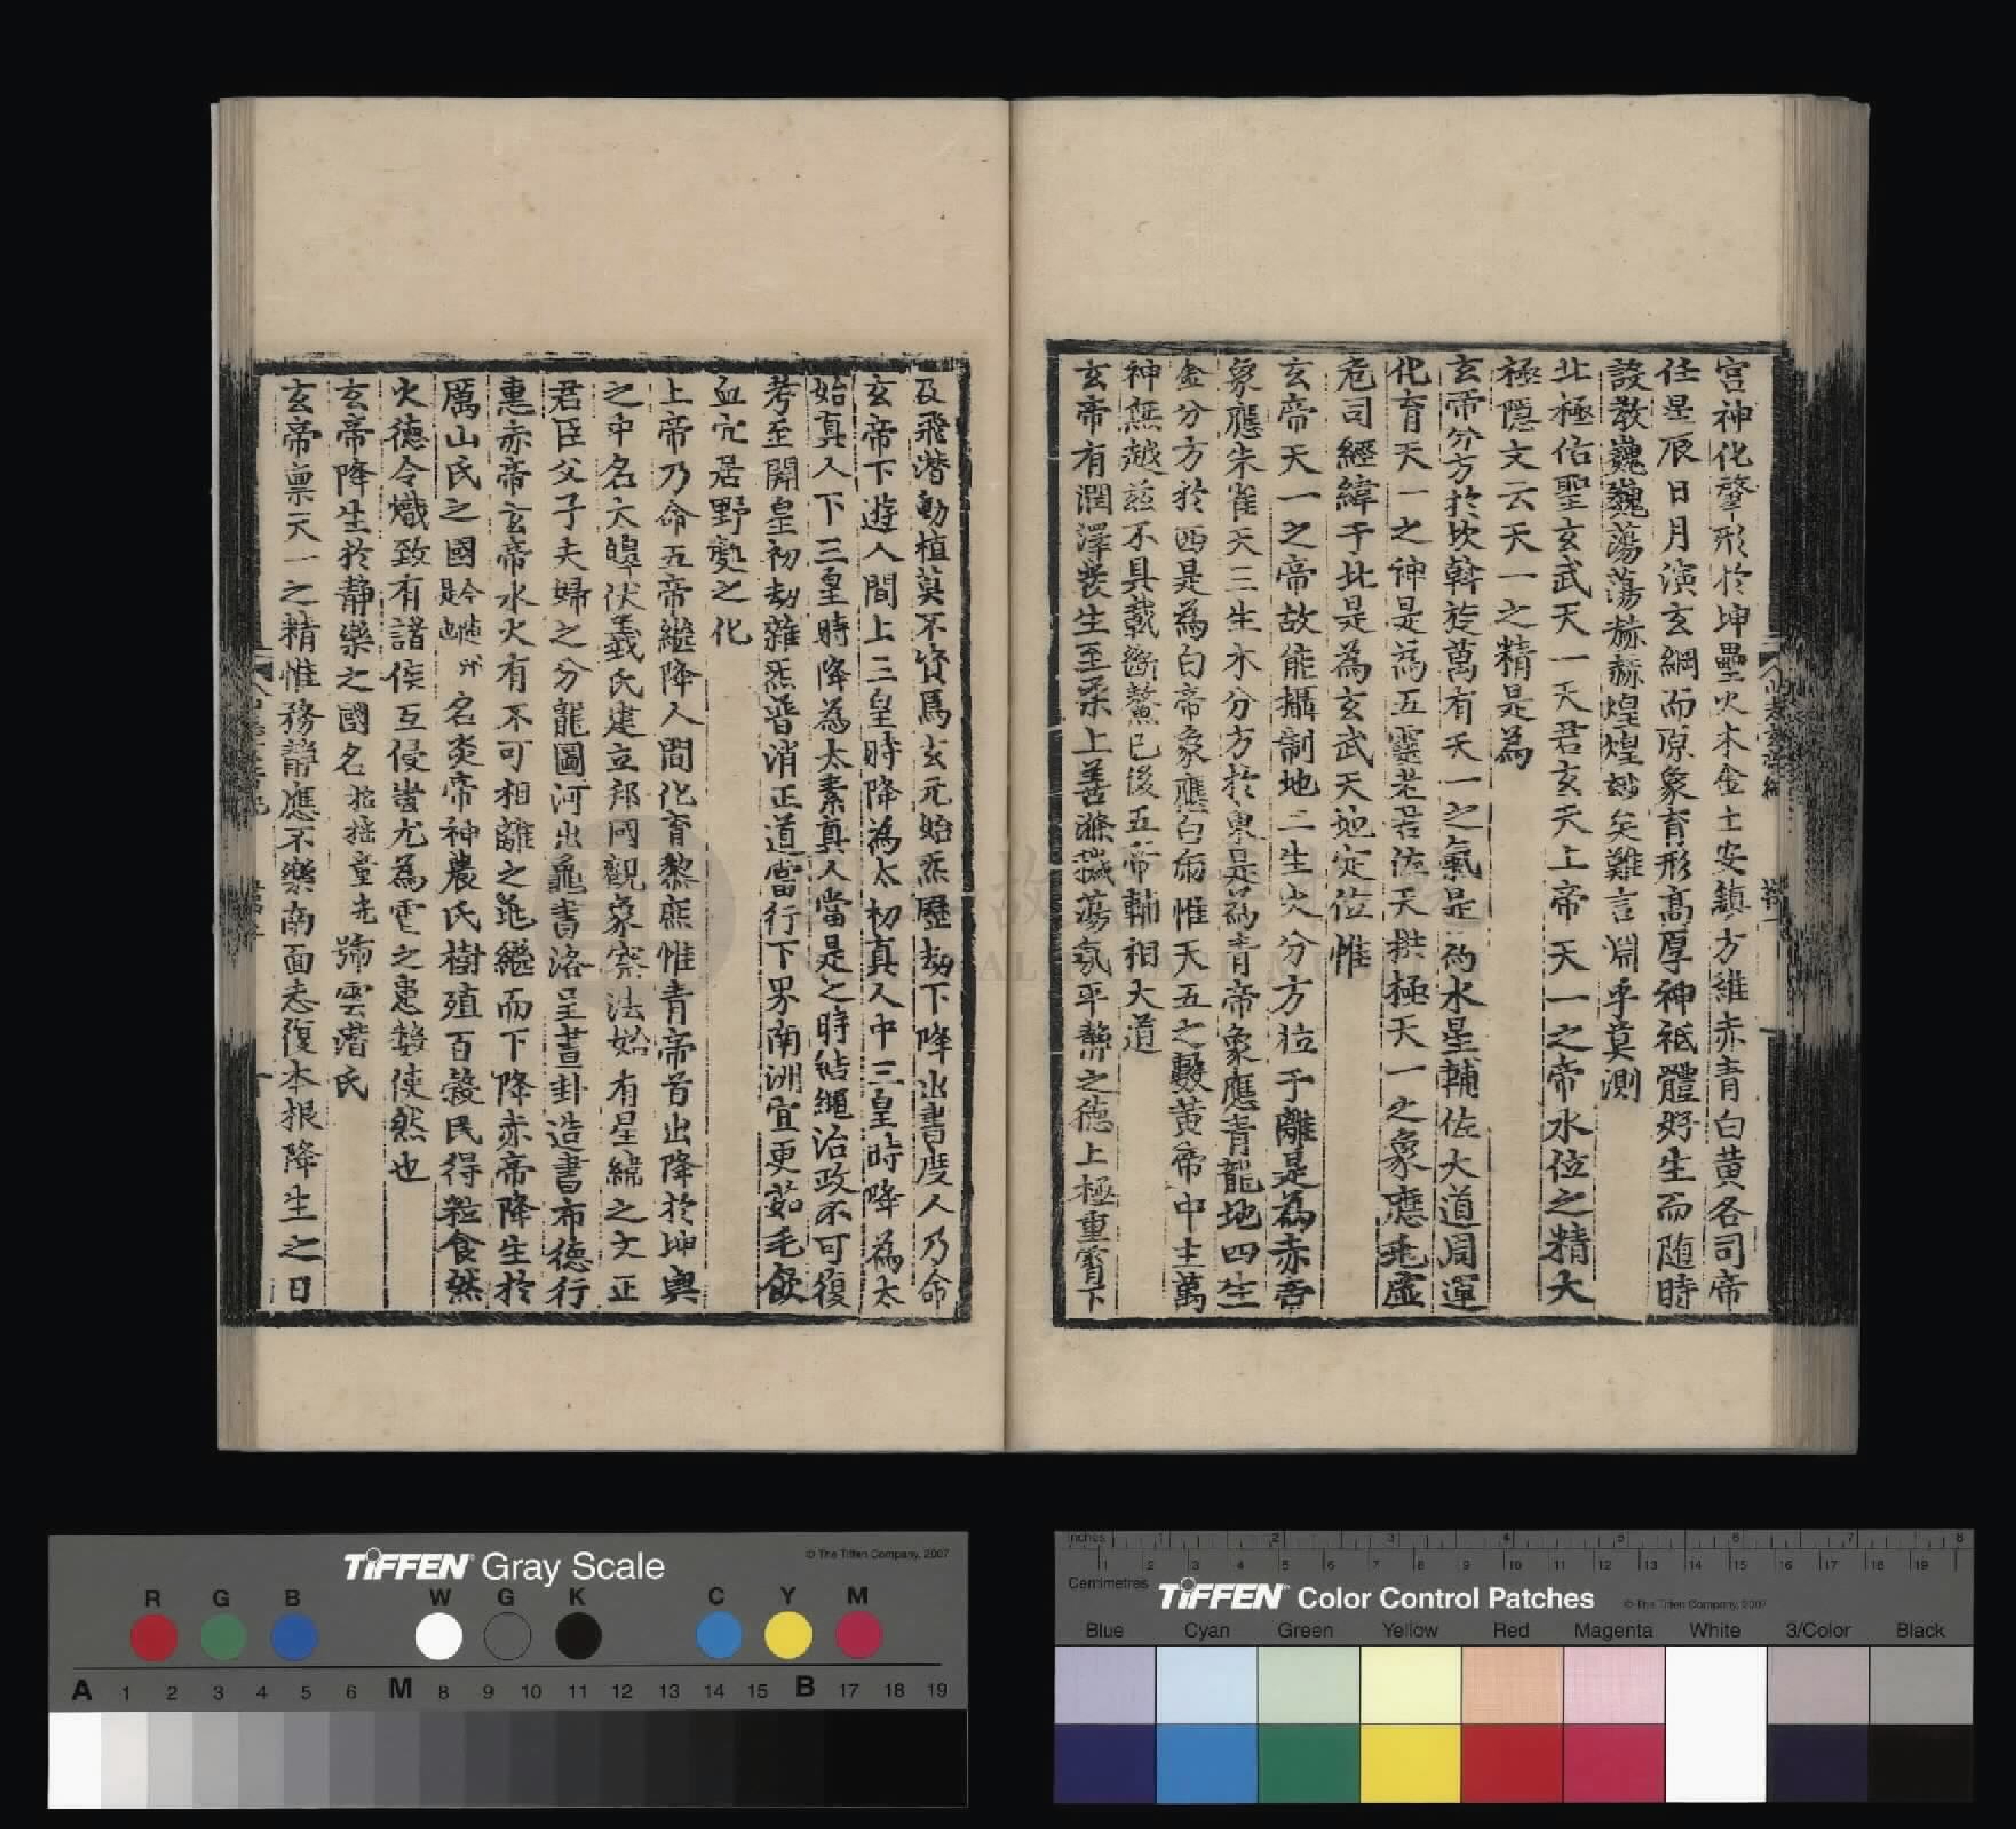 宫神化肇形於坤壘火木金土安鎮方維赤青白黄各司帝
任星辰日月演玄綱而原象育形髙厚神祗體好生而随時
設敎巍巍蕩蕩赫赫煌煌玅矣難言淵乎莫測
北極佑聖玄武天一天君玄天上帝天一之帝水位之精大
極隠文云天一之精是為
玄帝分方於坎斡旋萬有天一之氣是為水星輔佐大道周運
化育天一之神是為五靈老君佐天拱極天一之象應乕虛
危司經緯于北是為玄武天地定位惟
玄帝天一之帝故能攝制地二生火分方位于離是為赤帝
象應朱雀天三生木分方於東是為青帝象應青龍地四生
金分方於西是為白帝象應白乕惟天五之數黃帝中主萬
神無越兹不具載斷鰲已後五帝輔相大道
玄帝有潤澤發生至柔上善滌穢蕩氛平慹之德上極重霄下
及飛潜動植莫不資焉玄元始炁歷劫下降出書度人乃命
玄帝下遊人間上三皇時降為太初真人中三皇時降為太
始真人下三皇時降為太素真人當是之時結繩治政不可復
考至開皇初劫雜炁普消正道當行下界南洲宜更茹毛飲
血穴居野䖏之化
上帝乃命五帝繼降人間化育黎庶惟青帝首出降於坤輿
之中名大皥伏羲氏建立邦國觀象察法始有星緯之文正
君臣父子夫婦之分龍圖河出龜書洛呈畫卦造書布德行
惠赤帝玄帝水火有不可相離之兆繼而下降赤帝降生於
厲山氏之國名炎帝神農氏樹殖百榖民得粒食然
火德令熾致有諸侯互侵蚩尤為雹之患㪅使然也
玄帝降生於靜樂之國名招摇童光號雲潛氏
玄帝禀天一之精惟務靜應不樂南面志復本根降生之日
TIFFEN Gray Scale
© The Tiffen Company, 2007
R G B W G K C Y M
A 1 2 3 4 5 6 M 8 9 10 11 12 13 14 15 B 17 18 19
inches 1 2 3 4 5 6 7 8
1 2 3 4 5 6 7 8 9 10 11 12 13 14 15 16 17 18 19
Centimetres
TIFFEN Color Control Patches
© The Tiffen Company, 2007
Blue Cyan Green Yellow Red Magenta White 3/Color Black